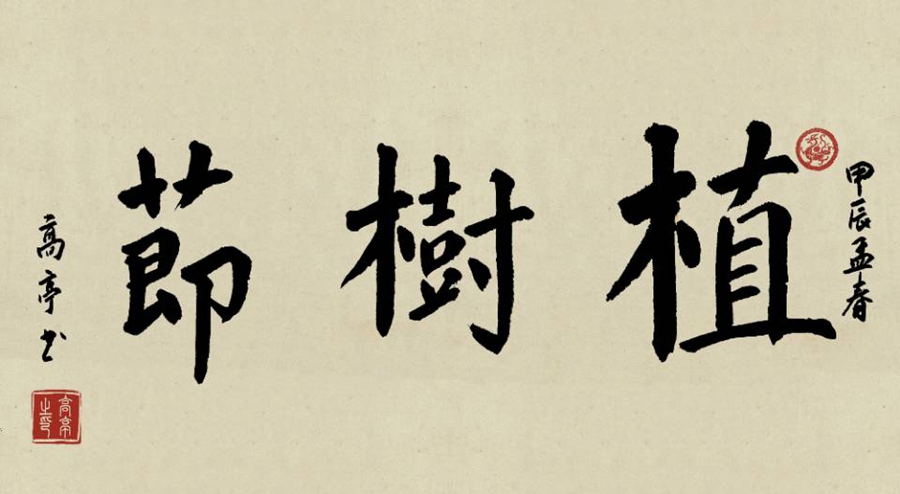 甲辰孟春
植樹節
高亭书
高亭之印